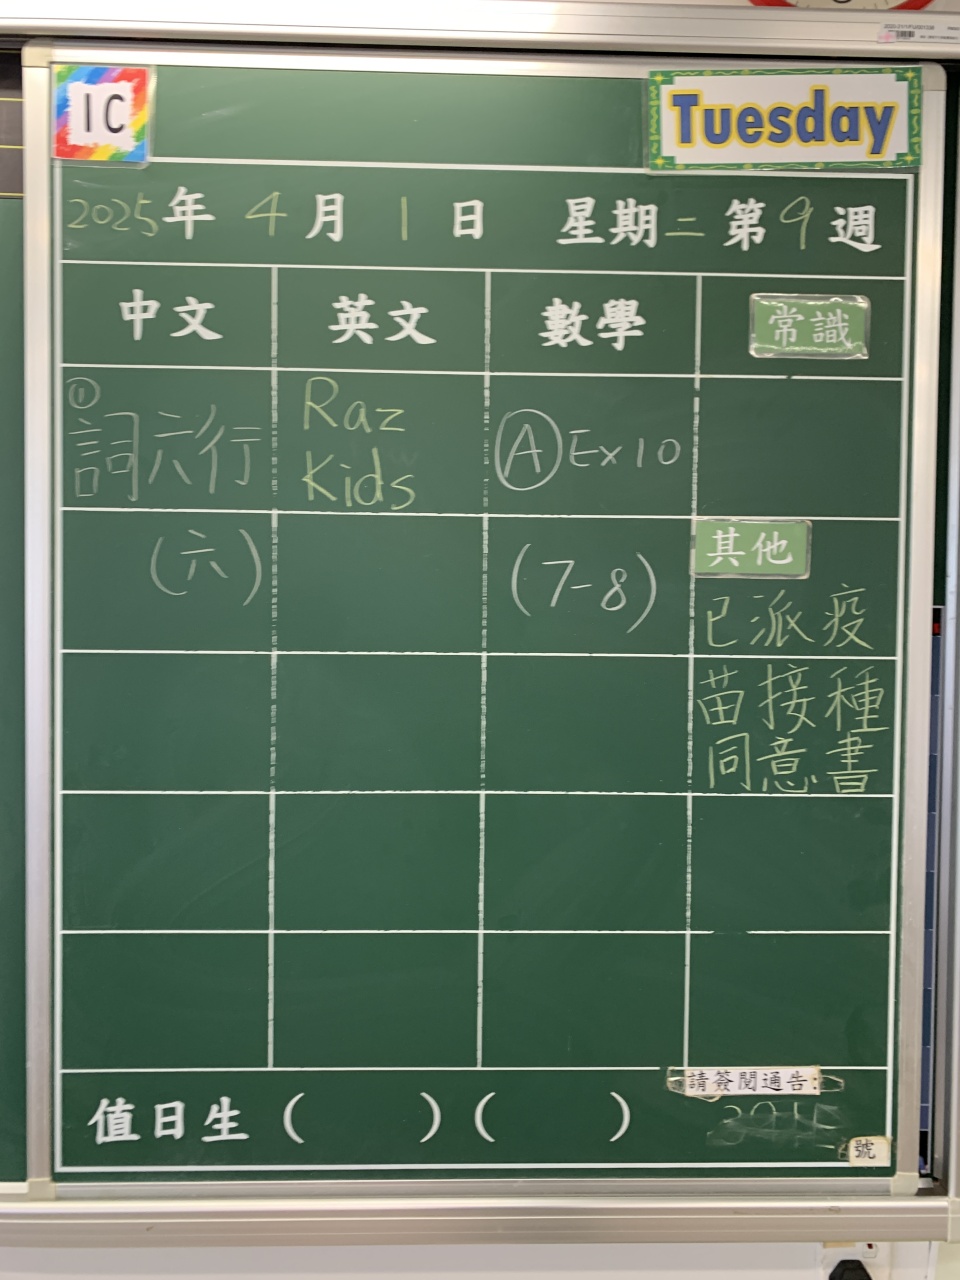 1C
Tuesday
2025年 4月 1日 星期二 第9週
中文 英文 數學 常識
①
詞六行
(六)
Raz
Kids
Ⓐ Ex 10
(7-8)
其他
已派疫
苗接種
同意書
請簽閱通告:
值日生( )( )
號